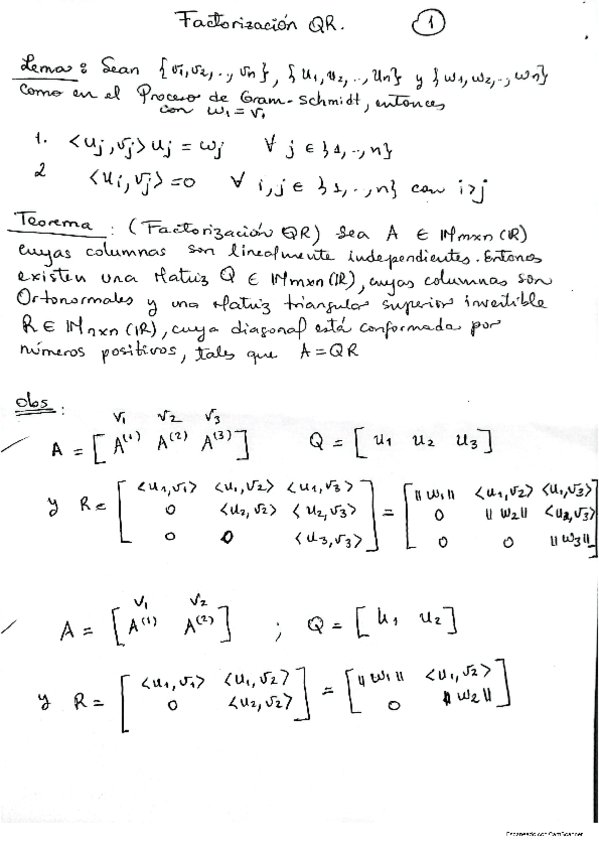 Factorización QR. 1
Lema: Sean {v1,v2,..,vn}, {u1,u2,..,un} y {w1,w2,..,wn}
como en el Proceso de Gram-Schmidt, entonces
con w1 = v1
1. <uj,vj>uj = wj ∀ j ∈ {1,..,n}
2 <ui,vj> = 0 ∀ i,j ∈ {1,..,n} con i>j
Teorema: (Factorización QR) Sea A ∈ Mmxn(IR)
cuyas columnas son linealmente independientes. Entonces
existen una Matriz Q ∈ Mmxn(IR), cuyas columnas son
Ortonormales y una Matriz triangular superior invertible
R ∈ Mnxn(IR), cuya diagonal está conformada por
números positivos, tales que A = QR
Obs:
v1 v2 v3
A = [A(1) A(2) A(3)] Q = [u1 u2 u3]
y R = [<u1,v1> <u1,v2> <u1,v3> = [||w1|| <u1,v2> <u1,v3>
0 <u2,v2> <u2,v3> 0 ||w2|| <u2,v3>
0 0 <u3,v3>] 0 0 ||w3||]
v1 v2
A = [A(1) A(2)] ; Q = [u1 u2]
y R = [<u1,v1> <u1,v2> = [||w1|| <u1,v2>
0 <u2,v2>] 0 ||w2||]
Escaneado con CamScanner